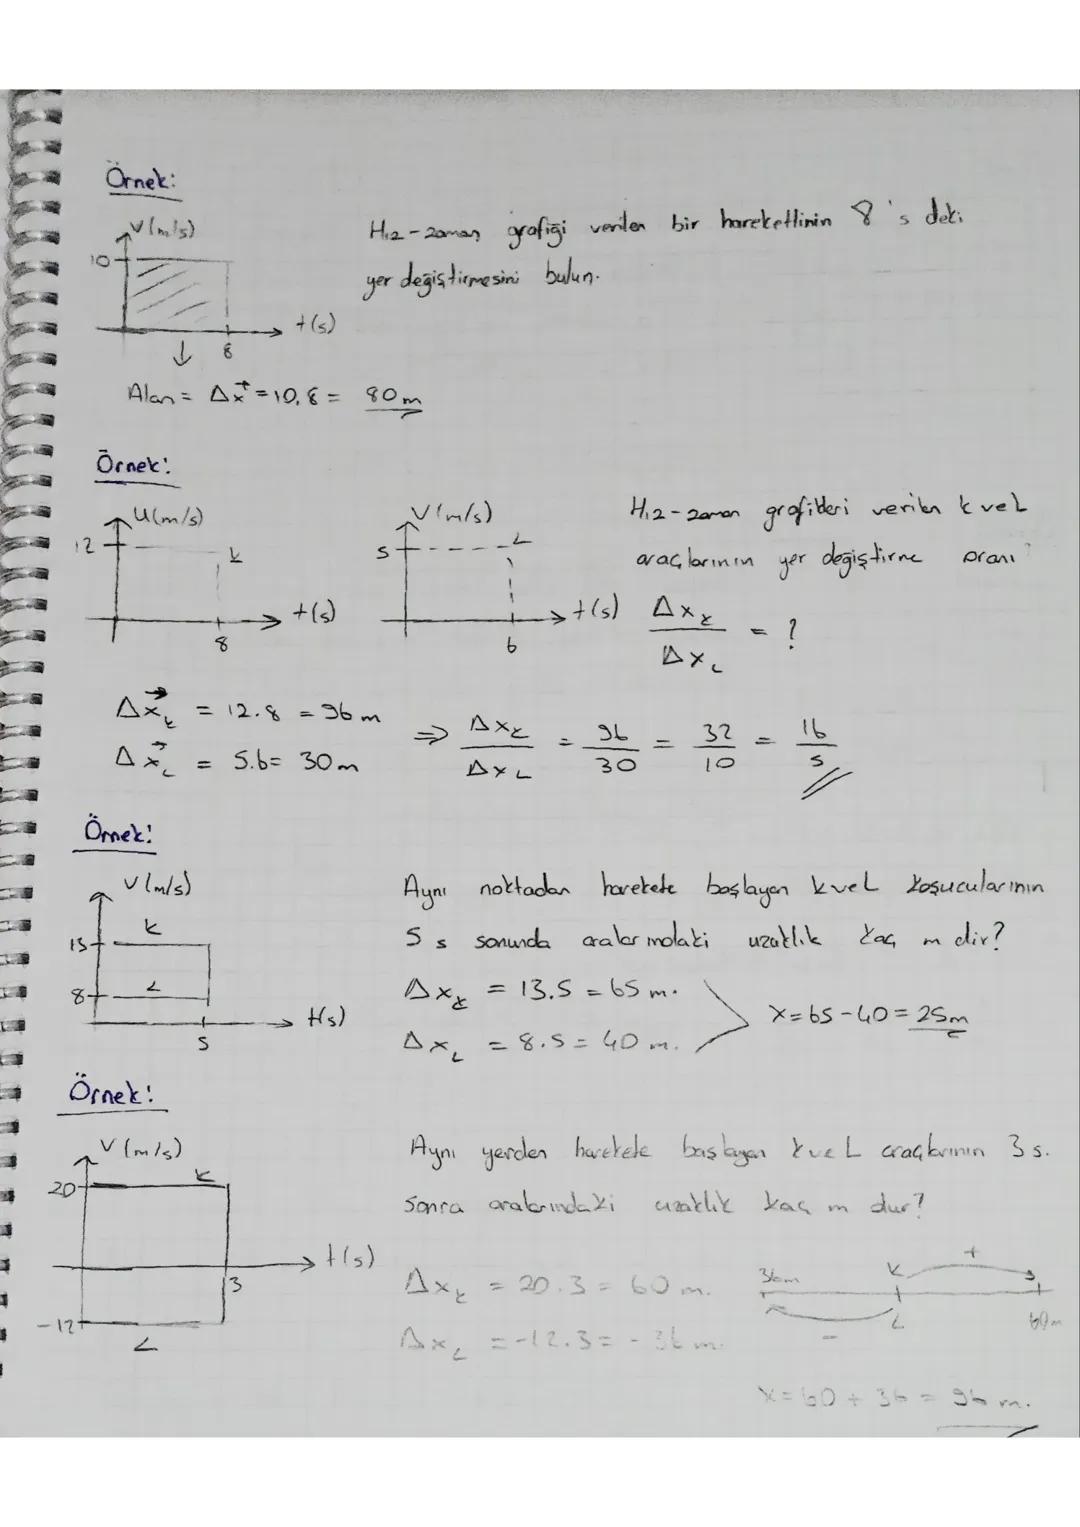 Örnek:
V(m/s)
10
t(s)
8
Hız-zaman grafiği verilen bir hareketlinin 8 's deki
yer değiştirmesini bulun.
Alan = Δx = 10.8 = 80 m
Örnek:
V(m/s)
12
K
t(s)
8
V(m/s)
5
L
t(s)
6
Hız-zaman grafikleri verilen K ve L
araçlarının yer değiştirme oranı?
Δx_K / Δx_L = ?
Δx_K = 12.8 = 96 m
Δx_L = 5.6 = 30 m
⇒ Δx_K / Δx_L = 96/30 = 32/10 = 16/5
Örnek:
V(m/s)
13
K
8
L
t(s)
5
Aynı noktadan harekete başlayan K ve L koşucularının
5 s sonunda aralarındaki uzaklık kaç m dir?
Δx_K = 13.5 = 65 m.
Δx_L = 8.5 = 40 m.
x = 65 - 40 = 25m
Örnek:
V(m/s)
20
K
t(s)
3
-12
L
Aynı yerden harekete başlayan K ve L araçlarının 3 s.
sonra aralarındaki uzaklık kaç m dur?
Δx_K = 20.3 = 60 m.
Δx_L = -12.3 = -36 m.
36m
K
+
L
-
60m
x = 60 + 36 = 96 m.